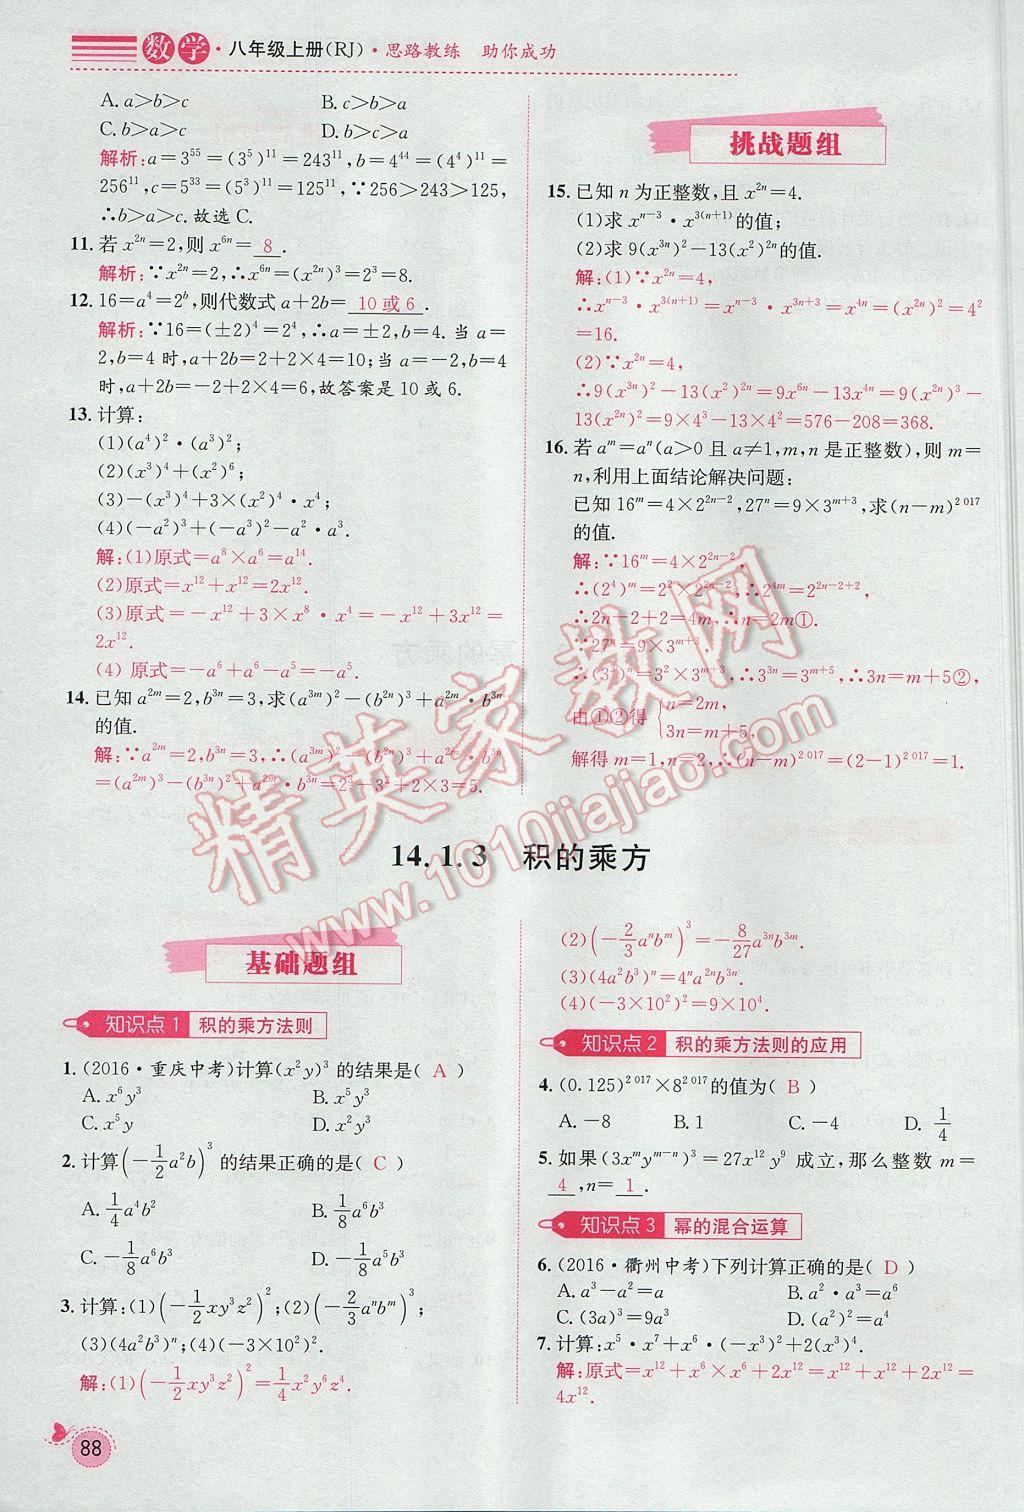 数学·八年级上册(RJ)·思路教练 助你成功
A. a>b>c B. c>b>a
C. b>a>c D. b>c>a
解析:a=3⁵⁵=(3⁵)¹¹=243¹¹,b=4⁴⁴=(4⁴)¹¹=
256¹¹,c=5³³=(5³)¹¹=125¹¹,∵256>243>125,
∴b>a>c.故选C.
11. 若x²ⁿ=2,则x⁶ⁿ= 8 .
解析:∵x²ⁿ=2,∴x⁶ⁿ=(x²ⁿ)³=2³=8.
12. 16=a⁴=2ᵇ,则代数式a+2b= 10或6 .
解析:∵16=(±2)⁴=2⁴,∴a=±2,b=4.当a=
2,b=4时,a+2b=2+2×4=10;当a=-2,b=4
时,a+2b=-2+2×4=6,故答案是10或6.
13. 计算:
(1)(a⁴)²·(a³)²;
(2)(x³)⁴+(x²)⁶;
(3)-(x³)⁴+3×(x²)⁴·x⁴;
(4)(-a²)³+(-a³)²-a²·a⁴.
解:(1)原式=a⁸×a⁶=a¹⁴.
(2)原式=x¹²+x¹²=2x¹².
(3)原式=-x¹²+3×x⁸·x⁴=-x¹²+3x¹²=
2x¹².
(4) 原式=-a⁶+a⁶-a⁶=-a⁶.
14. 已知a²ᵐ=2,b³ⁿ=3,求(a³ᵐ)²-(b³ⁿ)³+a²ᵐ·b³ⁿ
的值.
解:∵a²ᵐ=2,b³ⁿ=3,∴(a³ᵐ)²-(b³ⁿ)³+a²ᵐ·b³ⁿ
=(a²ᵐ)³-(b³ⁿ)³+a²ᵐ·b³ⁿ=2³-3³+2×3=5.
挑战题组
15. 已知n为正整数,且x²ⁿ=4.
(1)求xⁿ⁻³·x³⁽ⁿ⁺¹⁾的值;
(2)求9(x³ⁿ)²-13(x²)²ⁿ的值.
解:(1)∵x²ⁿ=4,
∴xⁿ⁻³·x³⁽ⁿ⁺¹⁾=xⁿ⁻³·x³ⁿ⁺³=x⁴ⁿ=(x²ⁿ)²=4²
=16.
(2)∵x²ⁿ=4,
∴9(x³ⁿ)²-13(x²)²ⁿ=9x⁶ⁿ-13x⁴ⁿ=9(x²ⁿ)³-
13(x²ⁿ)²=9×4³-13×4²=576-208=368.
16. 若aᵐ=aⁿ(a>0且a≠1,m,n是正整数),则m=
n,利用上面结论解决问题:
已知16ᵐ=4×2²ⁿ⁻²,27ⁿ=9×3ᵐ⁺³,求(n-m)²⁰¹⁷
的值.
解:∵16ᵐ=4×2²ⁿ⁻²,
∴(2⁴)ᵐ=2²×2²ⁿ⁻²,∴2⁴ᵐ=2²ⁿ⁻²⁺²,
∴2n-2+2=4m,∴n=2m①.
∵27ⁿ=9×3ᵐ⁺³,
∴(3³)ⁿ=3²×3ᵐ⁺³,∴3³ⁿ=3ᵐ⁺⁵,∴3n=m+5②,
由①②得{n=2m,
3n=m+5,
解得m=1,n=2,∴(n-m)²⁰¹⁷=(2-1)²⁰¹⁷=1.
14.1.3 积的乘方
基础题组
知识点1 积的乘方法则
1. (2016·重庆中考)计算(x²y)³的结果是( A )
A. x⁶y³ B. x⁵y³
C. x⁵y D. x²y³
2. 计算(-1/2a²b)³的结果正确的是( C )
A. 1/4a⁴b² B. 1/8a⁶b³
C. -1/8a⁶b³ D. -1/8a⁵b³
3. 计算:(1)(-1/2xy³z²)²;(2)(-2/3aⁿbᵐ)³;
(3)(4a²b³)ⁿ;(4)(-3×10²)².
解:(1)(-1/2xy³z²)²=1/4x²y⁶z⁴.
(2)(-2/3aⁿbᵐ)³=-8/27a³ⁿb³ᵐ.
(3)(4a²b³)ⁿ=4ⁿa²ⁿb³ⁿ.
(4)(-3×10²)²=9×10⁴.
知识点2 积的乘方法则的应用
4. (0.125)²⁰¹⁷×8²⁰¹⁷的值为( B )
A. -8 B. 1 C. -4 D. 1/4
5. 如果(3xᵐyᵐ⁻ⁿ)³=27x¹²y⁹成立,那么整数m=
4 ,n= 1 .
知识点3 幂的混合运算
6. (2016·衢州中考)下列计算正确的是( D )
A. a³-a²=a B. a²·a³=a⁶
C. (3a)³=9a³ D. (a²)²=a⁴
7. 计算:x⁵·x⁷+x⁶·(-x³)²+2(x³)⁴.
解:原式=x¹²+x⁶×x⁶+2x¹²=x¹²+x¹²+2x¹²=
4x¹².
88
精英家教网
www.1010jiajiao.com